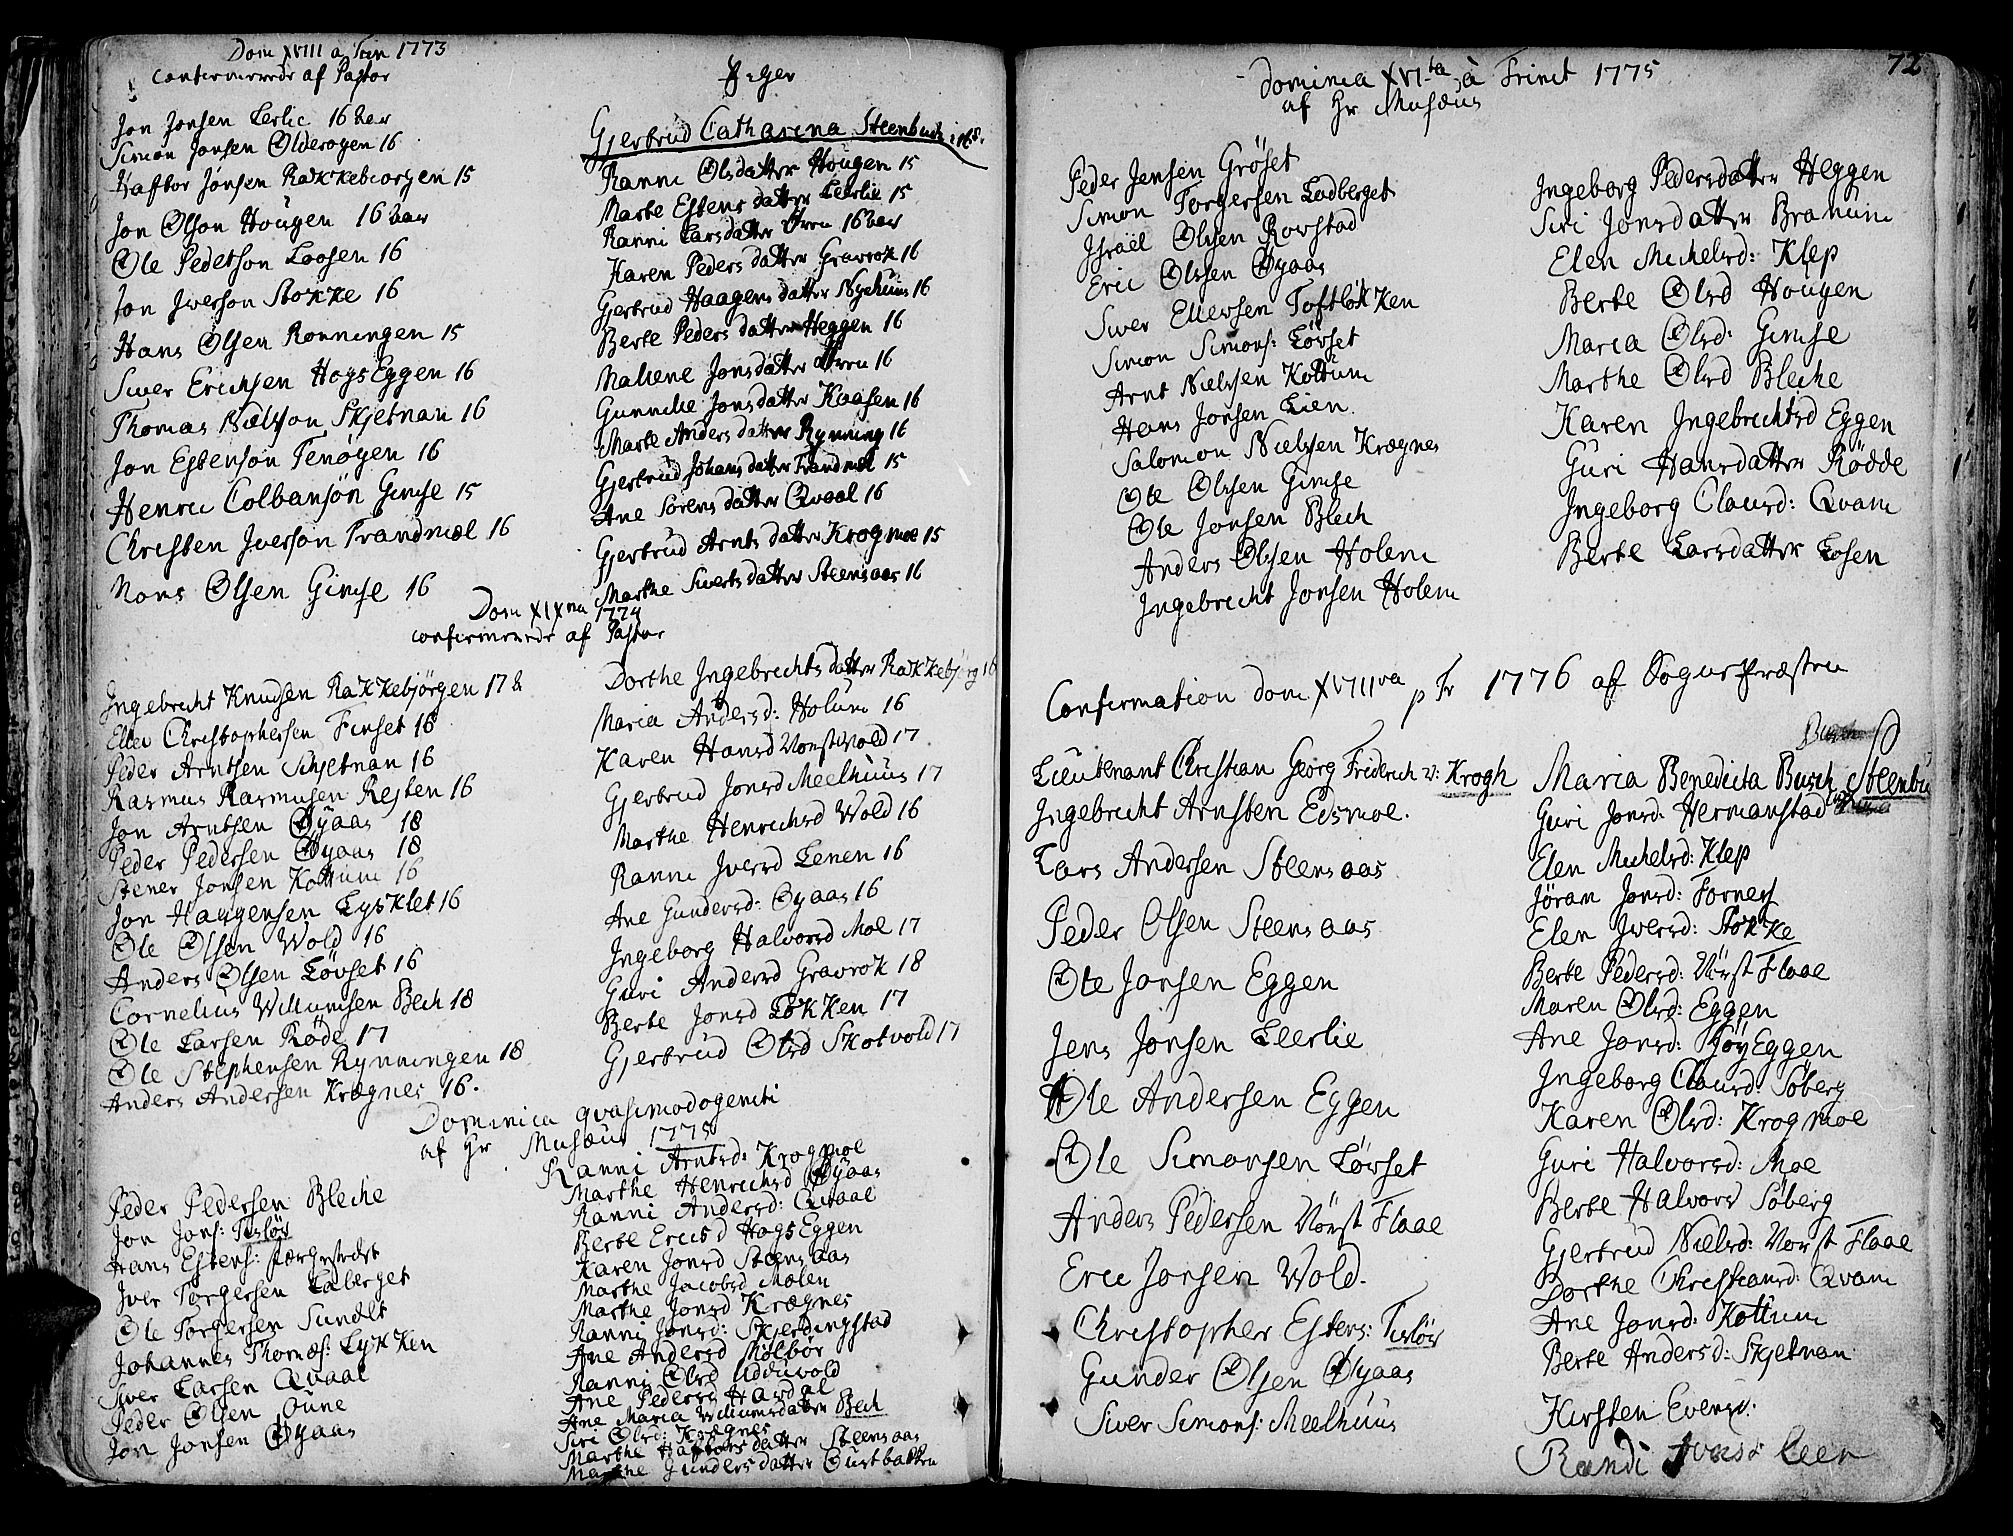 Dom XVIII a Trin 1773
Confirmerede af Pastor
Jon Jonsen Lerlie 16 aar
Simon Jonsen Olderogen 16
Haftor Jonsen Rakkebiorgen 15
Jon Olson Hougen 16 aar
Ole Pederson Loosen 16
Jon Iverson Stokke 16
Hans Olsen Ronningen 15
Siver Erichsen HogsEggen 16
Thomas Nielson Skjetnan 16
Jon Estenson Tenøyen 16
Henric Colbansøn Gimse 15
Christen Iverson Trandmæl 16
Mons Olsen Gimse 16
Piger
Gjertrud Catharina Steenbuch
Ranni Olsdatter Hougen 15
Marte Estensdatter Leerlie 15
Ranni Larsdatter Øren 16 aar
Karen Pedersdatter Gravrok 16
Gjertrud Haagensdatter Nyehuus 16
Berte Pedersdatter Heggen 16
Malene Jonsdatter Øren 16
Gunnilde Jonsdatter Kaasen 16
Marte Andersdatter Rynning 16
Gjertrud Johansdatter Trandmæl 15
Ane Sorensdatter Qvaal 16
Gjertrud Arntsdatter Krogmoe 15
Marthe Sivertsdatter Steensaas 16
Dom XIXna 1774
confirmerede af Pastor
Ingebrecht Knudsen Rakkebjörgen 17
Eller Christophersen Finset 18
Peder Arntsen Skjetnan 16
Rasmus Rasmusen Resten 16
Jon Arntsen Øyaas 18
Peder Pedersen Øyaas 18
Stener Jonsen Kottum 16
Jon Haagensen Lysklet 16
Ole Olsen Wold 16
Anders Olsen Lövset 16
Cornelius Willumsen Bech 18
Ole Larsen Röde 17
Ole Stephensen Rynningen 18
Anders Andersen Krægnes 16.
Dorthe Ingebrechtsdatter Rakkebjörg 16
Maria Andersd: Holum 16
Karen Hansd Vorstvold 17
Gjertrud Jonsd Meelhuus 17
Marthe Henrichsd Wold 16
Ranni Iversd Lenen 16
Ane Gundersd: Øyaas 16
Ingeborg Halvorsd Moe 17
Guri Andersd Gravrok 18
Berte Jonsd Løkken 17
Gjertrud Olsd Skotvold 17
Dominica qvasimodogeniti
af Hr Musæus 1775
Peder Pedersen Bleche
Jon Jons: Tislös
Hans Estens:
Iver Torgersen Laberget
Ole Torgersen Sundet
Johannes Thomæs: Lykken
Siver Larsen Qvaal
Peder Olsen Oune
Jon Jonsen Øyaas
Ranni Arntsd: Krogmoe
Marthe Henrichsd Øyaas
Ranni Andersd: Qvaal
Berte Ericsd HogsEggen
Karen Jonsd Steensaas
Marthe Jacobsd Molen
Marthe Jonsd Krægnes
Ranni Jonsd: Skjerdingstad
Ane Andersd Mølbör
Ranni Olsd Udduvold
Ane Pedersd Hardal
Ane Maria Willumsdatter Bech
Siri Olsd: Krægnes
Marthe Haftorsdatter Steensaas
Marthe Gundersdatter Oustbakken
72
Dominica XVIta à Trinit 1775
af Hr Musæus
Peder Jensen Gröset
Simon Torgersen Ladberget
Israel Olsen Rovstad
Eric Olsen Øyaas
Siver Ellevsen Toftløkken
Simon Simons: Lövset
Arnt Nielsen Kottum
Hans Jonsen Lien.
Salomon Nielsen Krægnes
Ole Olsen Gimse
Ole Jonsen Blech
Anders Olsen Holem
Ingebrecht Jonsen Holem
Ingeborg Pedersdatter Heggen
Siri Jonsdatter Branum
Elen Michelsd: Klep
Berte Olsd Hougen
Maria Olsd: Gimse
Marthe Olsd Bleche
Karen Ingebrechtsd Eggen
Guri Hansdatter Rödde
Ingeborg Clausd: Qvam
Berte Larsdatter Losen
Confirmation dom XVIIIva p Tr 1776 af Sogne Præsten
Lieutenant Christian Georg Friderich v: Krogh
Ingebrecht Arnsten Eidsmoe.
Lars Andersen Steensaas
Peder Olsen Steensaas
Ole Jonsen Eggen
Jens Jonsen Leerlie
Ole Andersen Eggen
Ole Simonsen Lövset
Anders Pedersen Vorst Flaae
Eric Jonsen Wold.
Christopher Estens: Tislös
Gunder Olsen Øyaas
Siver Simons: Meelhuus
Maria Benedicta Busch Steenbu
Guri Jonsd: Hermanstad
Elen Michelsd: Klep
Jöran Jonsd: Fornes
Elen Iversd: Stokke
Berte Pedersd: Vorst Flaae
Maren Olsd: Eggen
Ane Jonsd: HöyEggen
Ingeborg Clausd: Söberg
Karen Olsd: Krogmoe
Guri Halvorsd: Moe
Berte Halvorsd Söberg
Gjertrud Nielsd: Vorst Flaae
Dorthe Christiansd: Qvam
Ane Jonsd: Kottum
Berte Andersd: Skjetnan
Kirsten Evensd:
Randi Leer